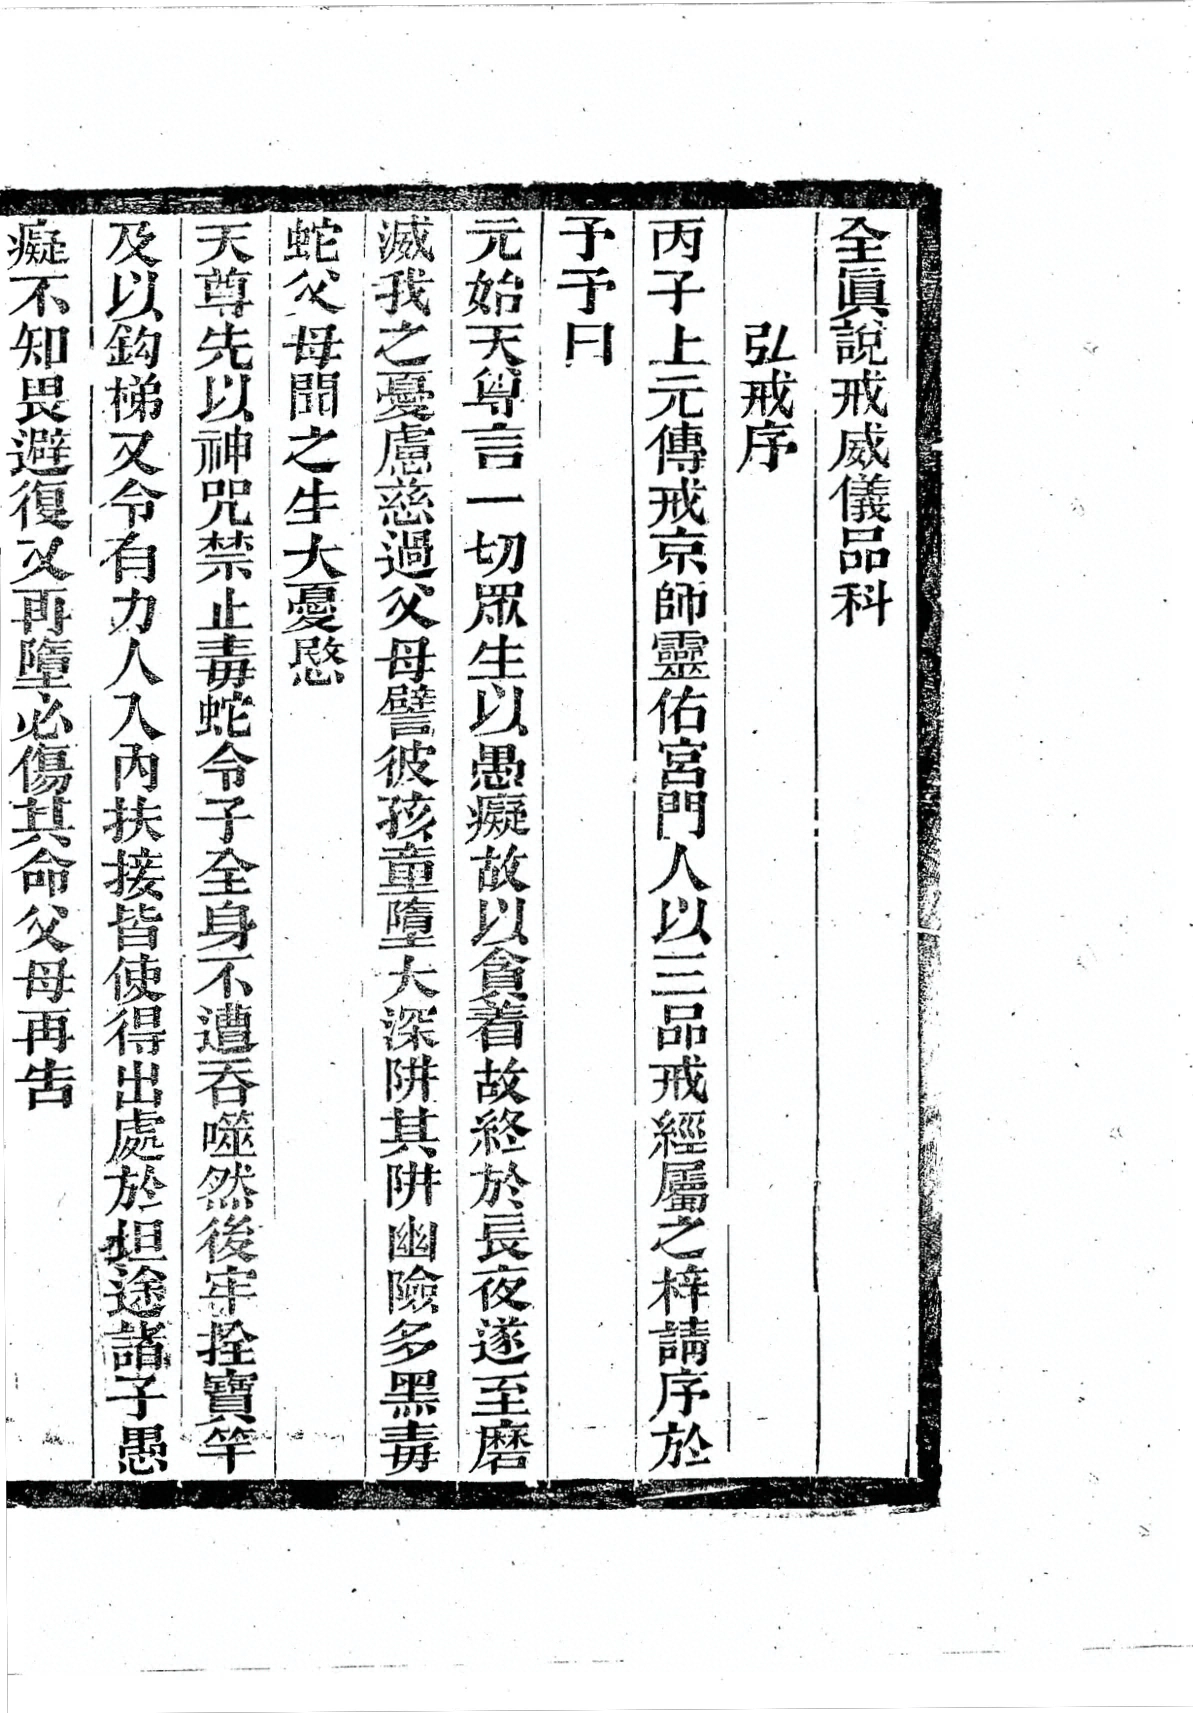 全眞說戒威儀品科
弘戒序
丙子上元傳戒京師靈佑宮門人以三品戒經屬之梓請序於
予予曰
元始天尊言一切眾生以愚癡故以貪着故終於長夜遂至磨
滅我之憂慮慈過父母譬彼孩童墮大深阱其阱幽險多黑毒
蛇父母聞之生大憂愍
天尊先以神咒禁止毒蛇令子全身不遭吞噬然後牢拴寶竿
及以鈎梯又令有力人入內扶接皆使得出處於坦途諸子愚
癡不知畏避復又再墮必傷其命父母再告